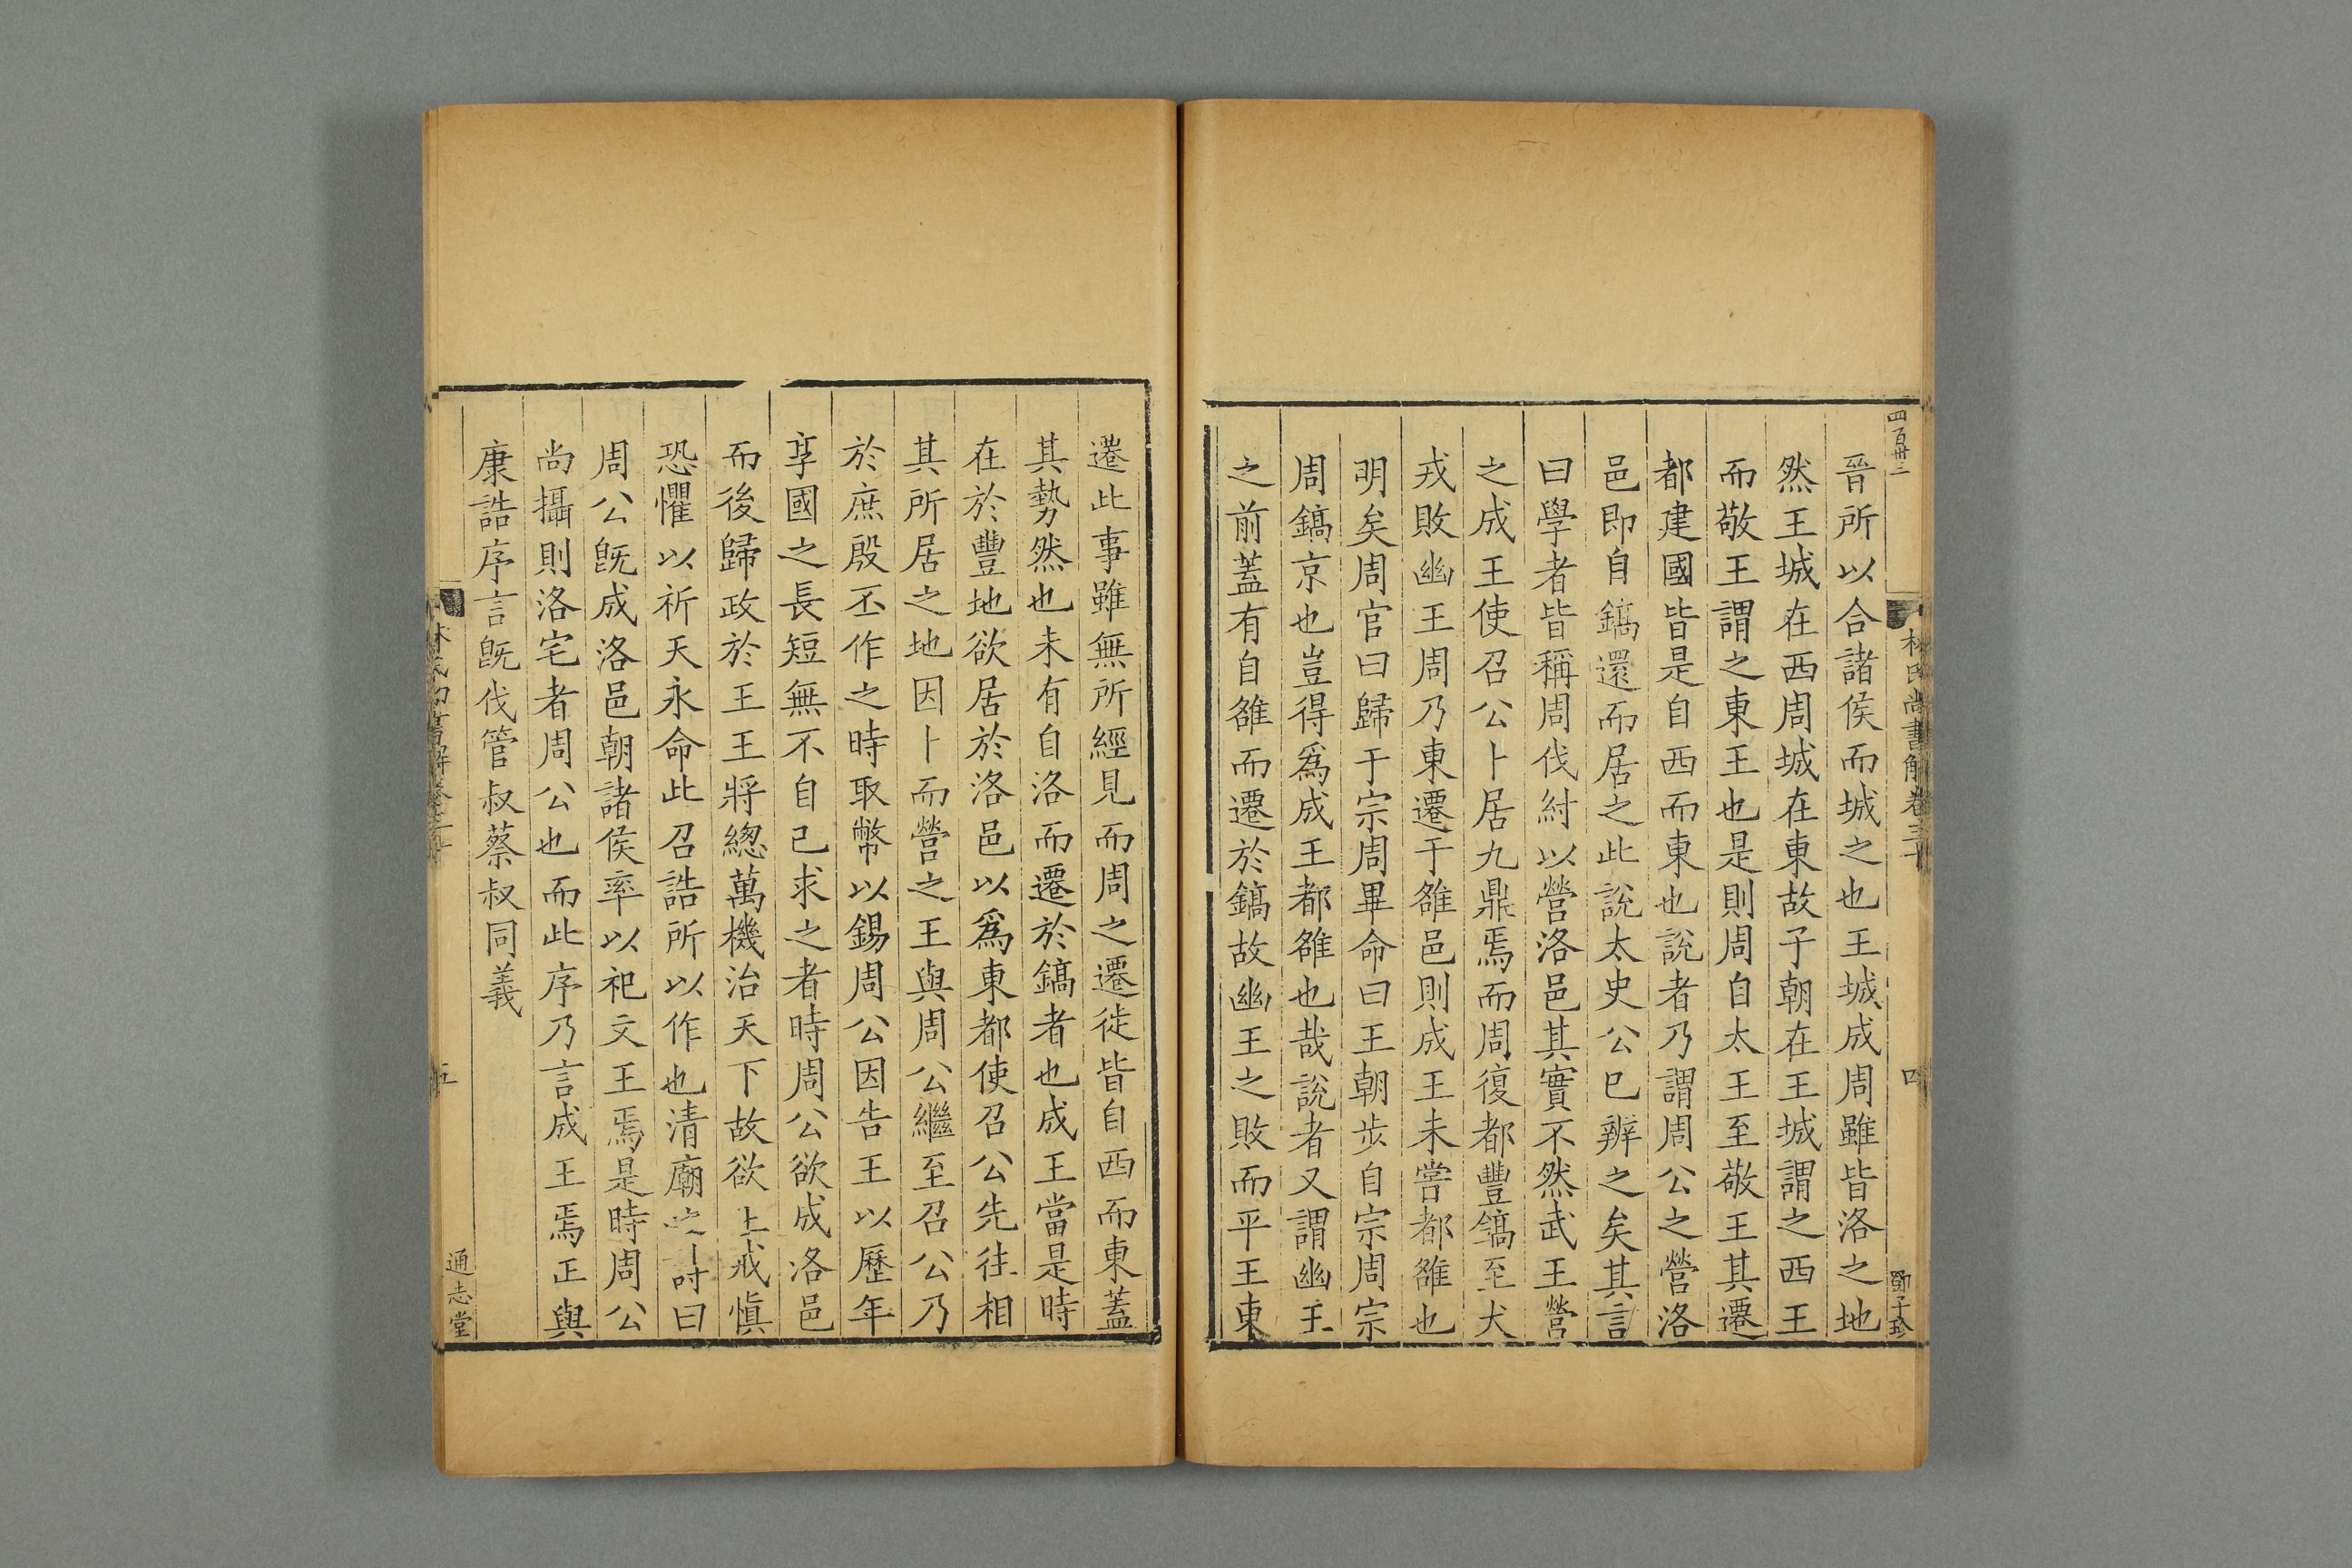 四百卅三
林氏尚書解卷三十
四
鄧子珍
晉所以合諸侯而城之也王城成周雖皆洛之地
然王城在西周城在東故子朝在王城謂之西王
而敬王謂之東王也是則周自太王至敬王其遷
都建國皆是自西而東也說者乃謂周公之營洛
邑即自鎬還而居之此說太史公已辨之矣其言
曰學者皆稱周伐紂以營洛邑其實不然武王營
之成王使召公卜居九鼎焉而周復都豐鎬至犬
戎敗幽王周乃東遷于雒邑則成王未嘗都雒也
明矣周官曰歸于宗周畢命曰王朝步自宗周宗
周鎬京也豈得爲成王都雒也哉說者又謂幽王
之前蓋有自雒而遷於鎬故幽王之敗而平王東
遷此事雖無所經見而周之遷徙皆自西而東蓋
其勢然也未有自洛而遷於鎬者也成王當是時
在於豐地欲居於洛邑以爲東都使召公先往相
其所居之地因卜而營之王與周公繼至召公乃
於庶殷丕作之時取幣以錫周公因告王以歷年
享國之長短無不自己求之者時周公欲成洛邑
而後歸政於王王將緫萬機治天下故欲上戒愼
恐懼以祈天永命此召誥所以作也清廟之詩曰
周公旣成洛邑朝諸侯率以祀文王焉是時周公
尚攝則洛宅者周公也而此序乃言成王焉正與
康誥序言旣伐管叔蔡叔同義
五
通志堂